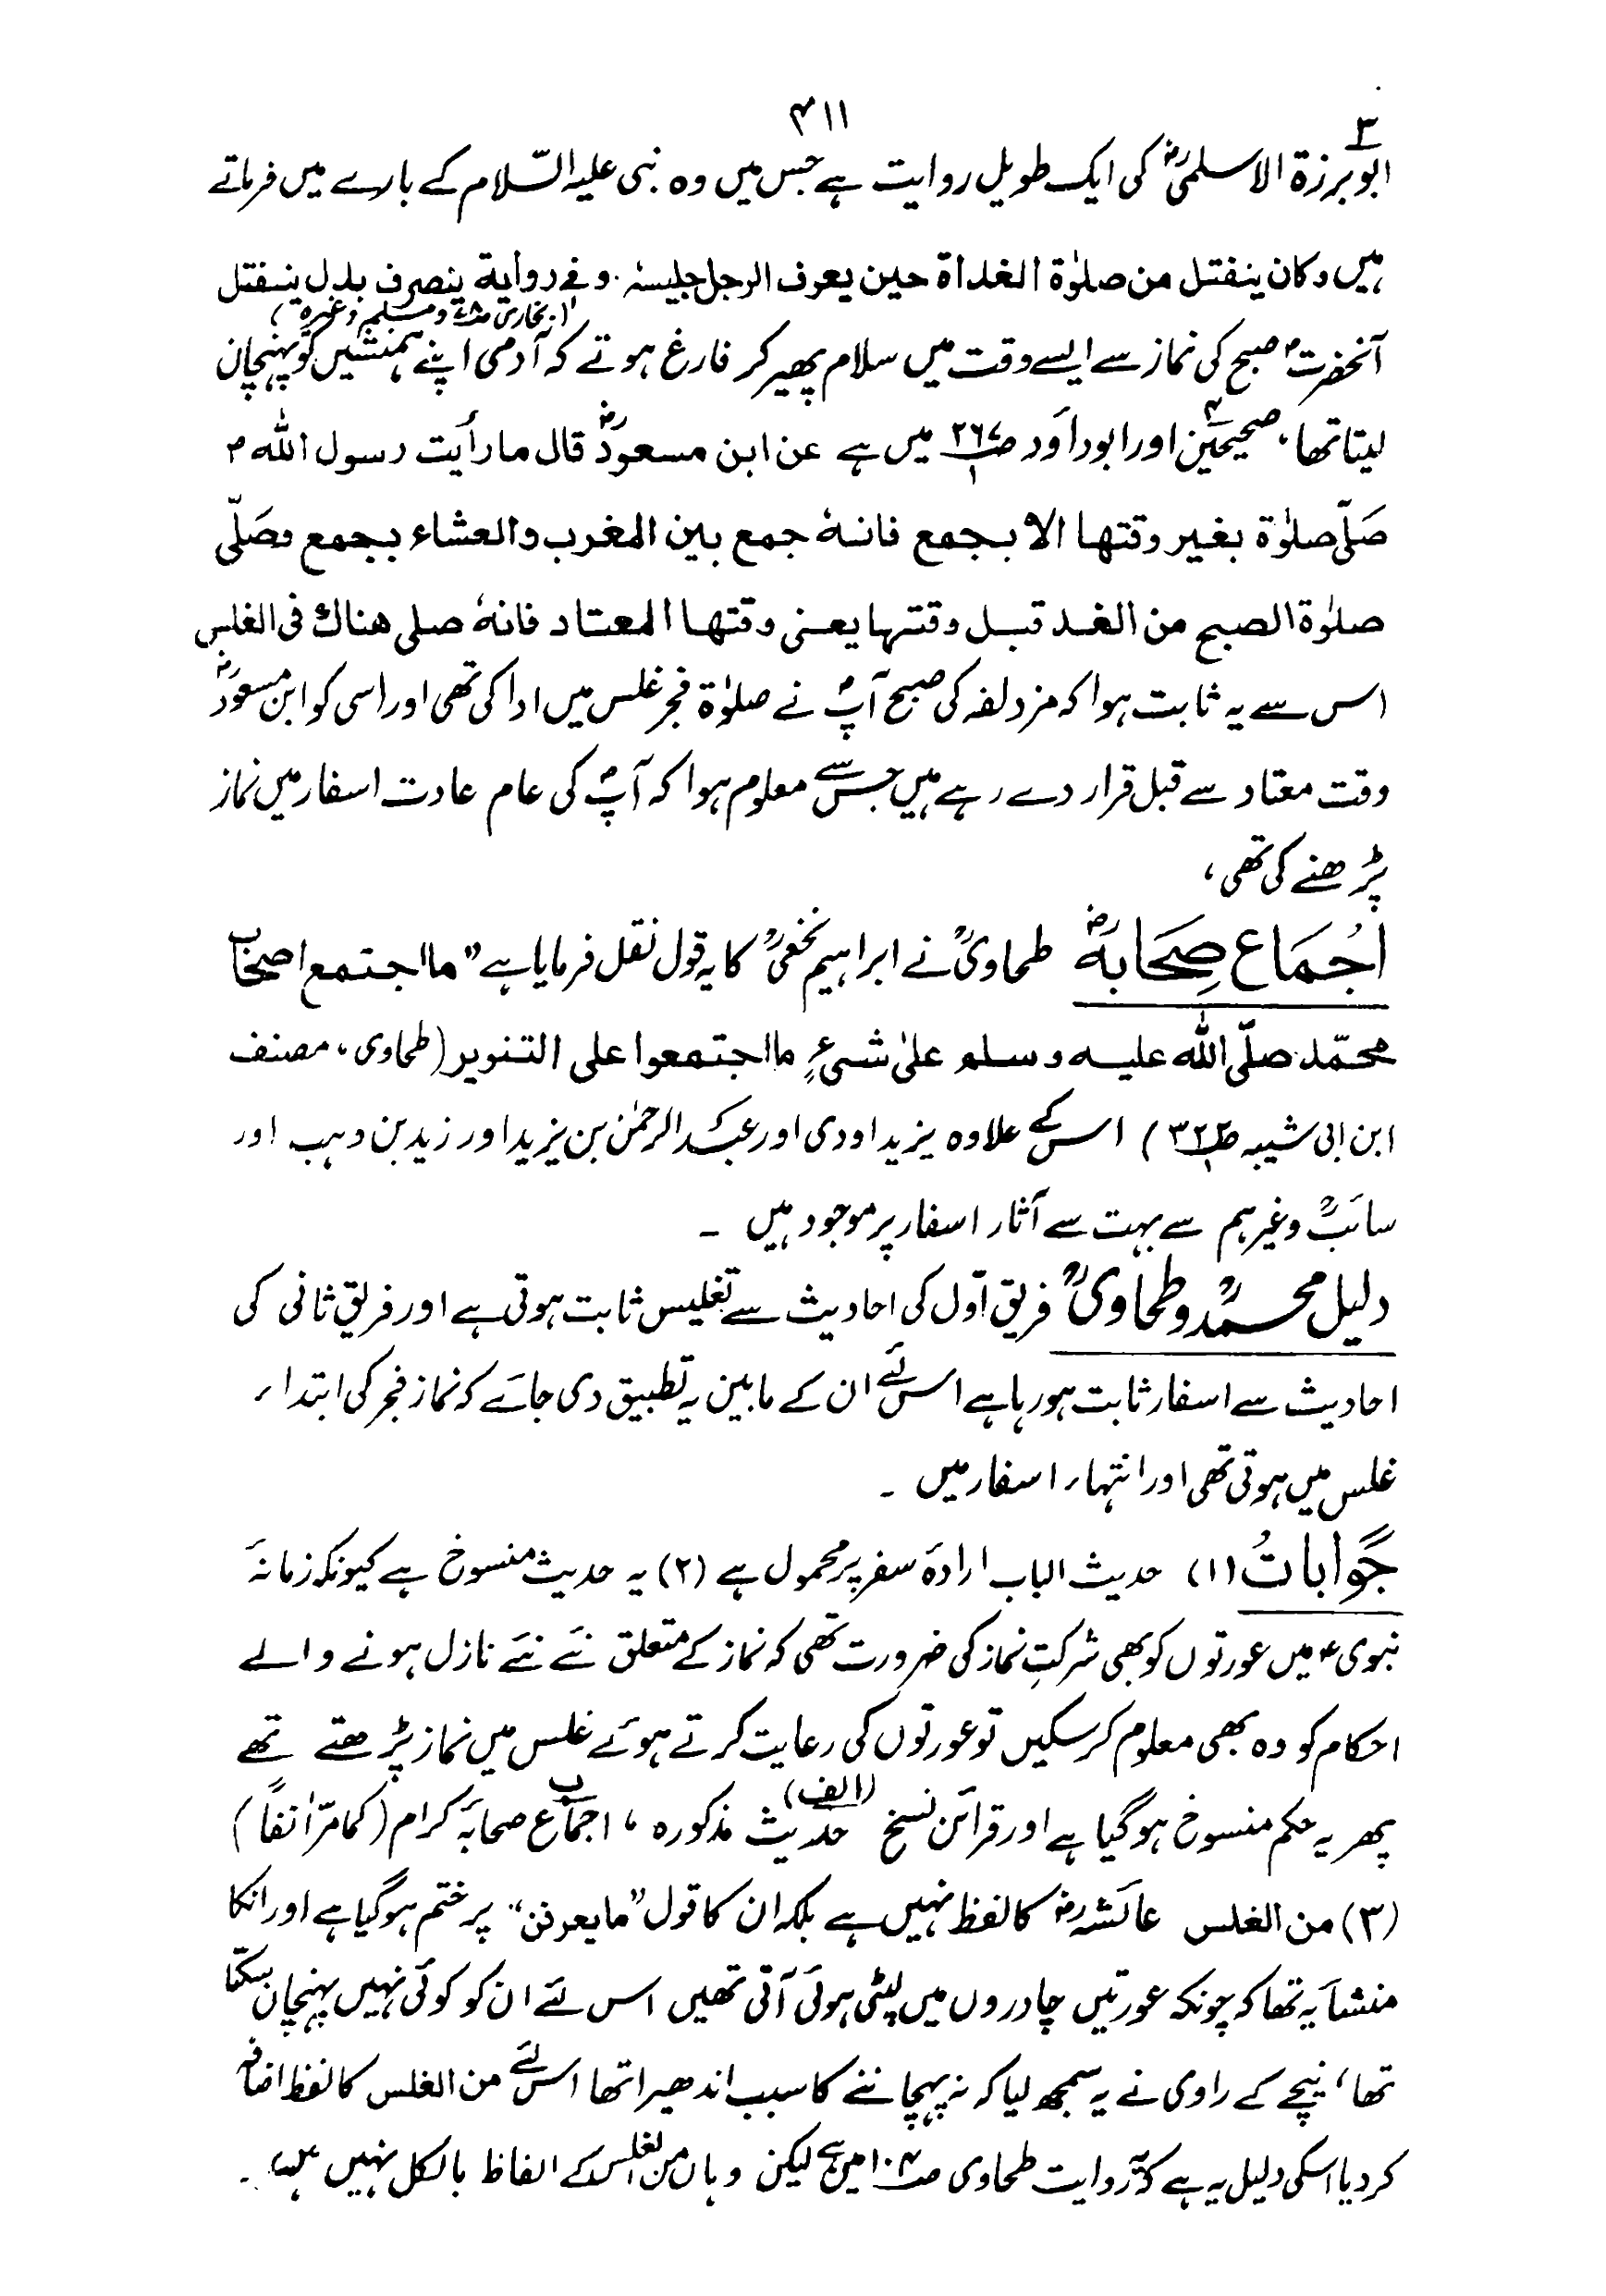 ۴۱۱
۳
ابوبرزۃ الاسلمیؓ کی ایک طویل روایت ہے جس میں وہ نبی علیہ السّلام کے بارے میں فرماتے
ہیں وکان ینفتل من صلوٰة الغداة حین یعرف الرجل جلیسهٗ۔ وفے روایة ینصرف بدل ینفتل
(بخاری ومسلم وغیرہ)
آنحضرتؐ صبح کی نماز سے ایسے وقت میں سلام پھیر کر فارغ ہوتے کہ آدمی اپنے ہمنشیں کو پہنچان
لیتا تھا، ۴ صحیحین اور ابوداؤد ص۲۶۷/۱ میں ہے عن ابن مسعودؓ قال ما رأیت رسول اللہ ؐ
صَلّٰی صلوٰة بغیر وقتها الا بجمع فانهٗ جمع بین المغرب والعشاء بجمع وصَلّٰی
صلوٰة الصبح من الغد قبل وقتها یعنی وقتها المعتاد فانهٗ صلی هناك فی الغلس
اس سے یہ ثابت ہوا کہ مزدلفہ کی صبح آپؐ نے صلوٰۃ فجر غلس میں ادا کی تھی اور اسی کو ابن مسعودؓ
وقت معتاد سے قبل قرار دے رہے ہیں جس سے معلوم ہوا کہ آپؐ کی عام عادت اسفار میں نماز
پڑھنے کی تھی،
اجُمَاع صِحَابہؓ طحاویؒ نے ابراہیم نخعیؒ کا یہ قول نقل فرمایا ہے "ما اجتمع اصحاب
محمّد صلّی اللہ علیه وسلم علیٰ شیءٍ ما اجتمعوا علی التنویر (طحاوی، مصنف
ابن ابی شیبہ ص۳۲۲/۱) اس کے علاوہ یزید اودی اور عبد الرحمٰن بن یزید اور زید بن وہب اور
سائبؒ وغیرہم سے بہت سے آثار اسفار پر موجود ہیں ۔
دلیل محمدؒ وطحاویؒ فریق اوّل کی احادیث سے تغلیس ثابت ہوتی ہے اور فریق ثانی کی
احادیث سے اسفار ثابت ہو رہا ہے اس لئے ان کے مابین یہ تطبیق دی جائے کہ نماز فجر کی ابتداء
غلس میں ہوتی تھی اور انتہاء اسفار میں ۔
جَوابَاتُ (۱) حدیث الباب ارادۂ سفر پر محمول ہے (۲) یہ حدیث منسوخ ہے کیونکہ زمانۂ
نبویؐ میں عورتوں کو بھی شرکتِ نماز کی ضرورت تھی کہ نماز کے متعلق نئے نئے نازل ہونے والے
احکام کو وہ بھی معلوم کر سکیں تو عورتوں کی رعایت کرتے ہوئے غلس میں نماز پڑھتے تھے
پھر یہ حکم منسوخ ہو گیا ہے اور قرائن نسخ (الف) حدیث مذکورہ، ب اجماع صحابۂ کرام (کما مرّ اٰنفاً)
(۳) من الغلس عائشہؓ کا لفظ نہیں ہے بلکہ ان کا قول "ما یعرفن" پر ختم ہو گیا ہے اور انکا
منشأ یہ تھا کہ چونکہ عورتیں چادروں میں لپٹی ہوئی آتی تھیں اس لئے ان کو کوئی نہیں پہنچان سکتا
تھا، نیچے کے راوی نے یہ سمجھ لیا کہ نہ پہچاننے کا سبب اندھیرا تھا اس لئے من الغلس کا لفظ اضافہ
کر دیا اسکی دلیل یہ ہے کہ یہ روایت طحاوی ص۱۰۴ میں ہے لیکن وہاں من الغلس کے الفاظ بالکل نہیں ہیں ۔